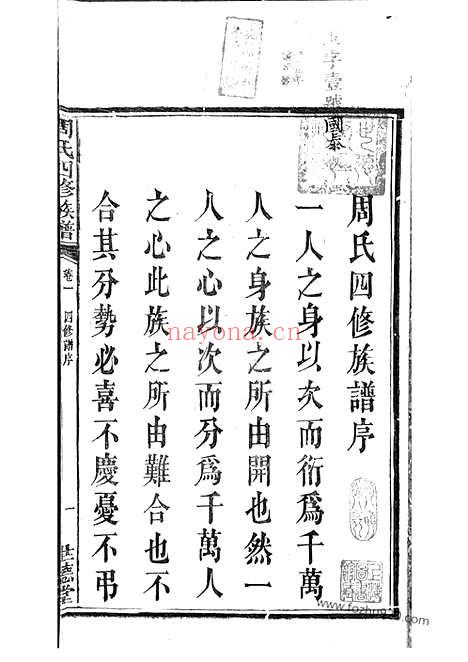 周氏四修族譜序
一人之身以次而衍爲千萬
人之身族之所由開也然一
人之心以次而分爲千萬人
之心此族之所由難合也不
合其分勢必喜不慶憂不弔
周氏四修族譜
卷一
四修譜序
一
世德堂
字壹號國泰
nayona.cn
www.fozhu920.com